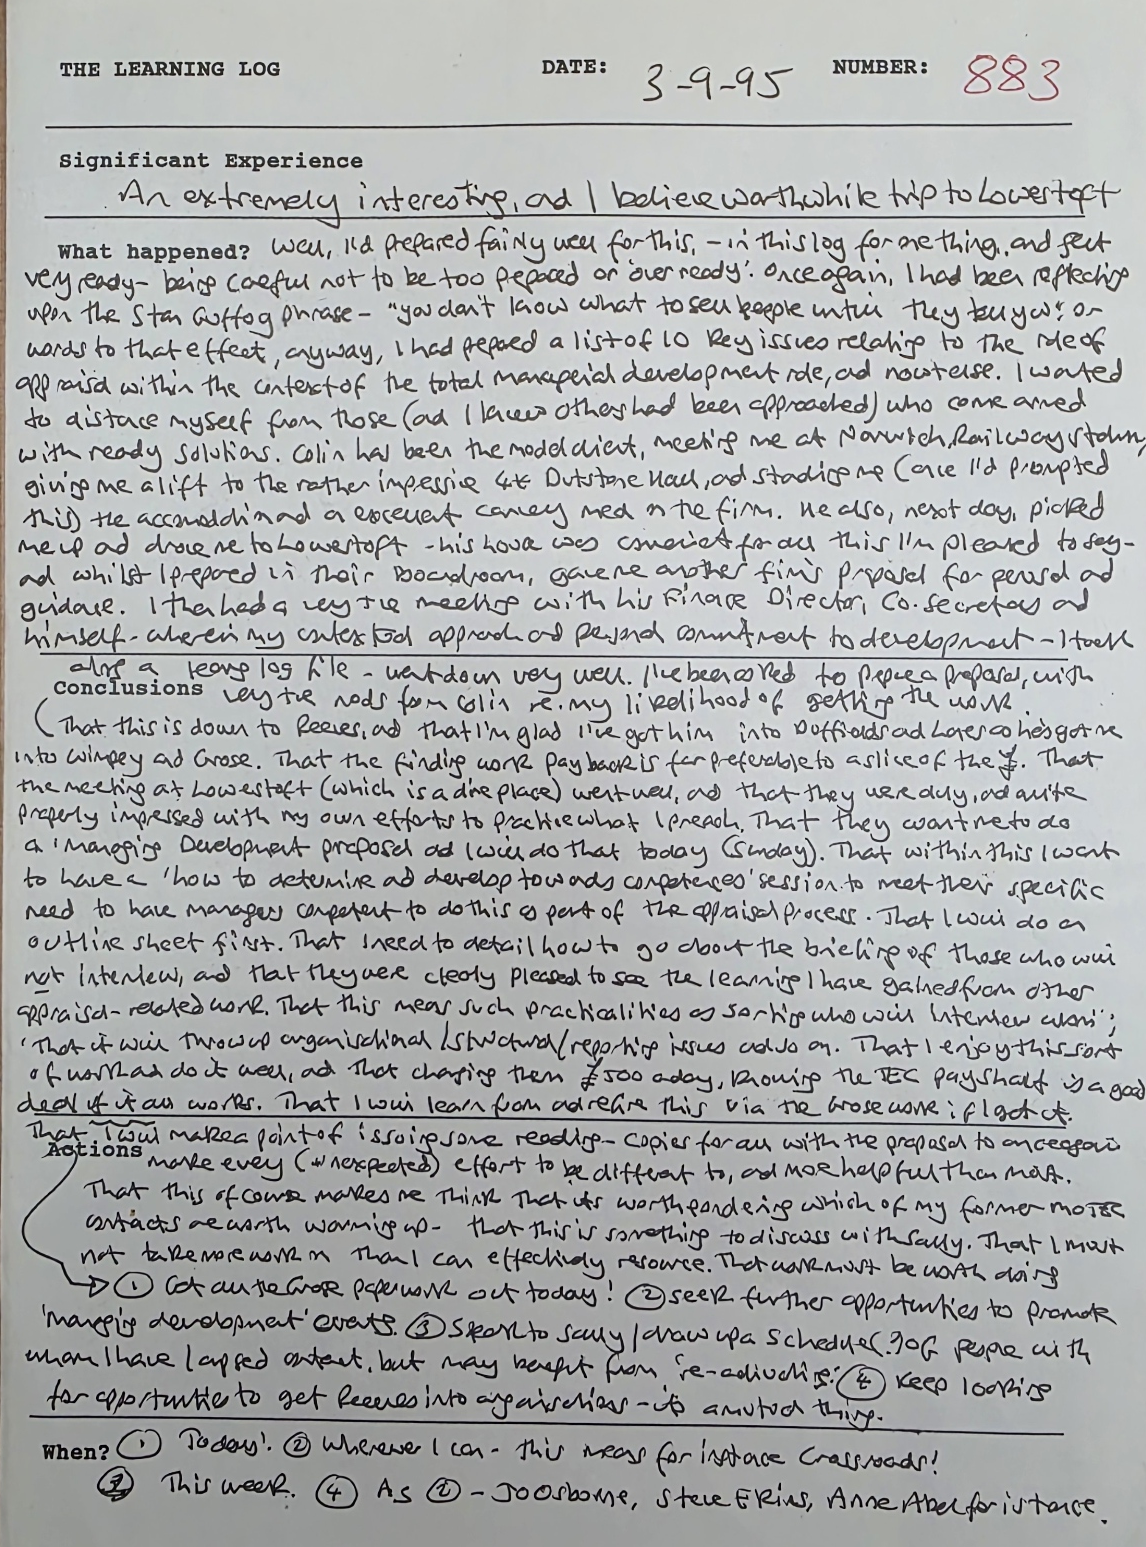 THE LEARNING LOG DATE: 3-9-95 NUMBER: 883
Significant Experience
An extremely interesting, ad I believe worthwhile trip to Lowestoft
What happened? Well, I'd prepared fairly well for this, - in this log for one thing, and felt
very ready - being careful not to be too prepared or 'over ready'. Once again, I had been reflecting
upon the Stan phrase - "you don't know what to sell people until they buy you"; or
words to that effect, anyway, I had prepared a list of 10 key issues relating to the role of
appraisal within the context of the total managerial development role, ad nowt else. I wanted
to distance myself from those (ad I knew others had been approached) who come armed
with ready solutions. Colin has been the model client, meeting me at Norwich Railway station,
giving me a lift to the rather impressive 4* Hall, ad standing me (once I'd prompted
this) the accomodation ad a excellent meal on the firm. He also, next day, picked
me up ad drove me to Lowestoft - his hour was for all this I'm pleased to say -
ad whilst I prepared in their Boardroom, gave me another firm's proposal for perusal ad
guidance. I then had a very +ve meeting with his Finance Director, Co. Secretary ad
himself - wherein my contextual approach ad personal commitment to development - I took
along a learning log file - went down very well. I've been asked to prepare a proposal, with
Conclusions very +ve nods from Colin re. my likelihood of getting the work.
That this is down to Reeves, ad that I'm glad I've got him into Duffields ad as he's got me
into Wimpey ad Grose. That the finding work payback is far preferable to a slice of the £. That
the meeting at Lowestoft (which is a dire place) went well, ad that they were duly, ad quite
properly impressed with my own efforts to practice what I preach. That they want me to do
a 'Managing Development' proposal ad I will do that today (Sunday). That within this I want
to have a 'how to determine ad develop towards competences' session to meet their specific
need to have managers competent to do this as part of the appraisal process. That I will do an
outline sheet first. That I need to detail how to go about the briefing of those who will
not interview, and that they were clearly pleased to see the learning I have gained from other
appraisal-related work. That this means such practicalities as sorting who will 'interview whom';
'That it will throw up organisational/structural/reporting issues ad so on. That I enjoy this sort
of work ad do it well, ad that charging them £500 a day, knowing the TEC pays half is a good
deal if it all works. That I will learn from ad refine this via the Grose work if I get it.
That I will make a point of issuing some reading - copies for all with the proposal to once again
Actions make every (+ unexpected) effort to be different to, ad more helpful than most.
That this of course makes me think that its worth pondering which of my former TEC
contacts are worth warming up - that this is something to discuss with Sally. That I must
not take more work on than I can effectively resource. That work must be worth doing
① Get all the Grose paperwork out today! ② Seek further opportunities to promote
'managing development' events. ③ Speak to Sally/draw up a schedule of people with
whom I have lapsed contact, but may benefit from 're-activating'. ④ Keep looking
for opportunities to get Reeves into organisations - its a mutual thing.
When? ① Today! ② Wherever I can - this means for instance Crossroads!
③ This week. ④ As ② - Jo Osborne, Steve Ekins, Anne Abel for instance.